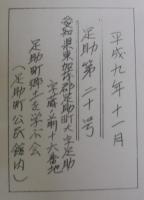 平成九年十一月
足助 第二十号
愛知県東加茂郡足助町大字足助
字宮ノ前十六番地
足助町郷土を学ぶ会
(足助町公民館内)